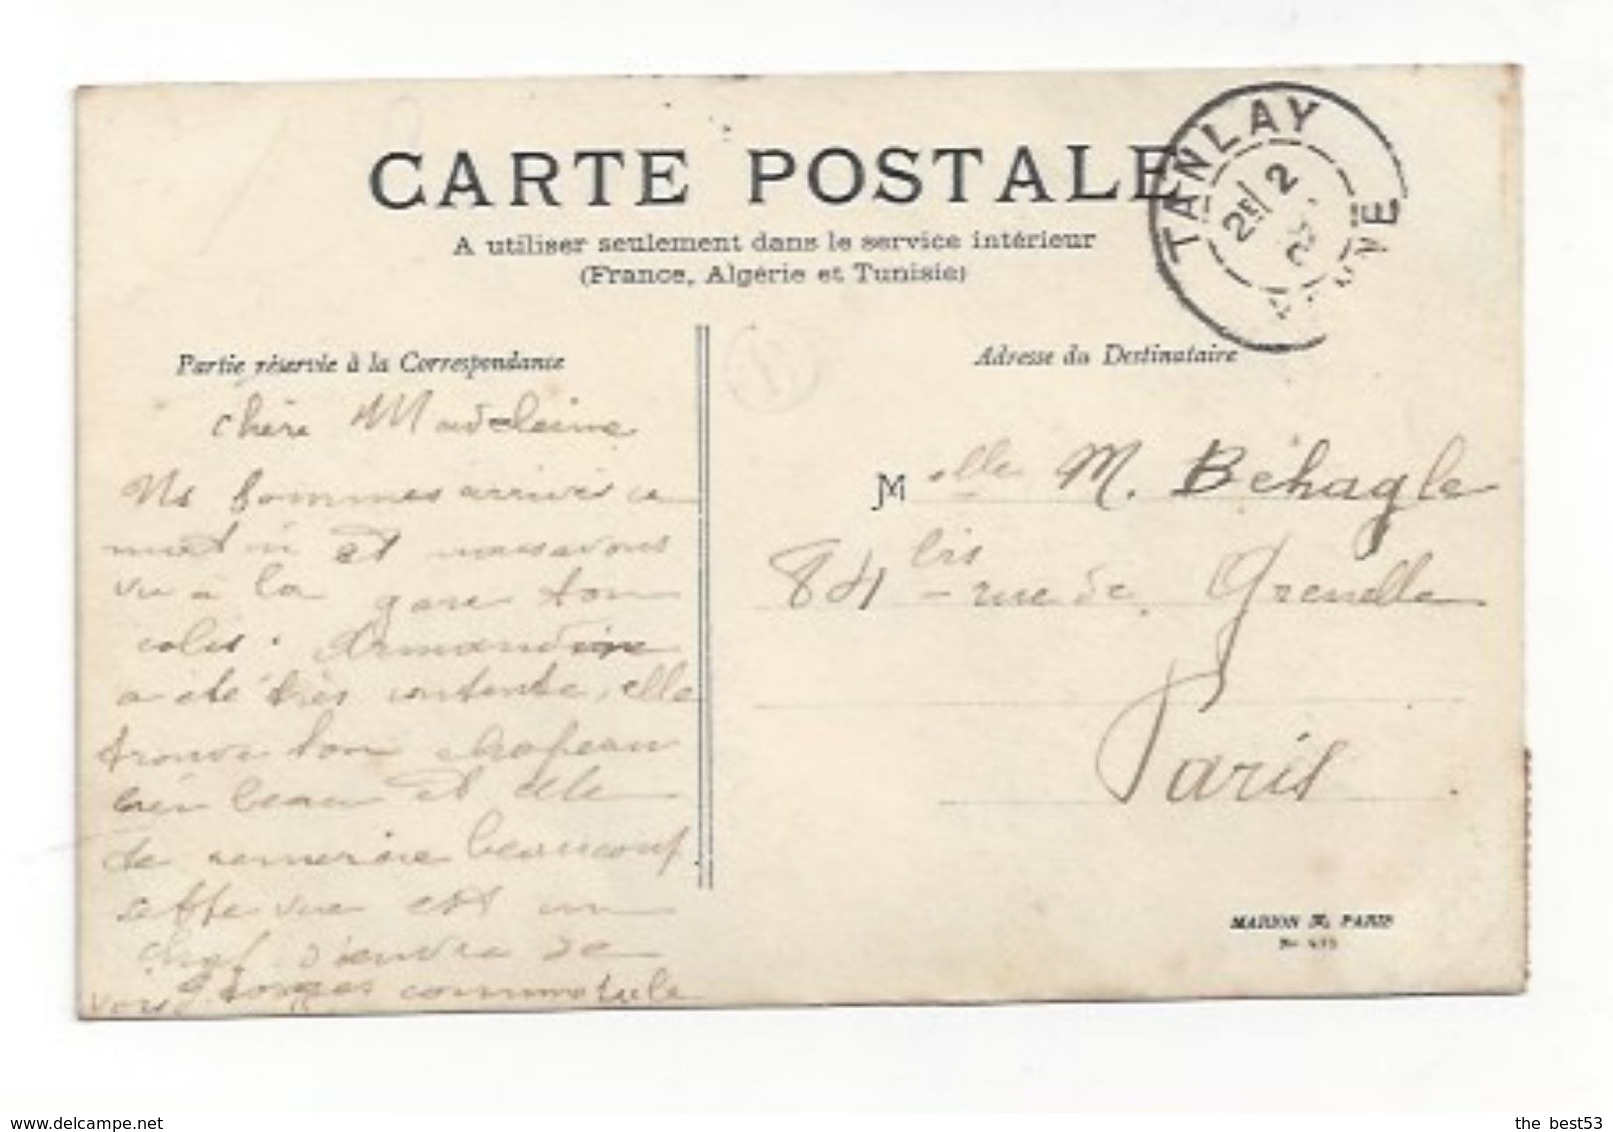 CARTE POSTALE
A utiliser seulement dans le service intérieur
(France, Algérie et Tunisie)
TANLAY
2E/ 2
Partie réservée à la Correspondance
Adresse du Destinataire
chère Madeleine
Ns sommes arrivés ce
matin et nous avons
vu à la gare ton
colis. Armandine
a été très contente, elle
trouve ton chapeau
bien beau et elle
te remercie beaucoup
cette vue est un
chef d'euvre de
Georges comme tu le
vois
Melle M. Béhagle
84 bis rue de Grenelle
Paris
MARION Fs, PARIS
delcampe.net
the_best53